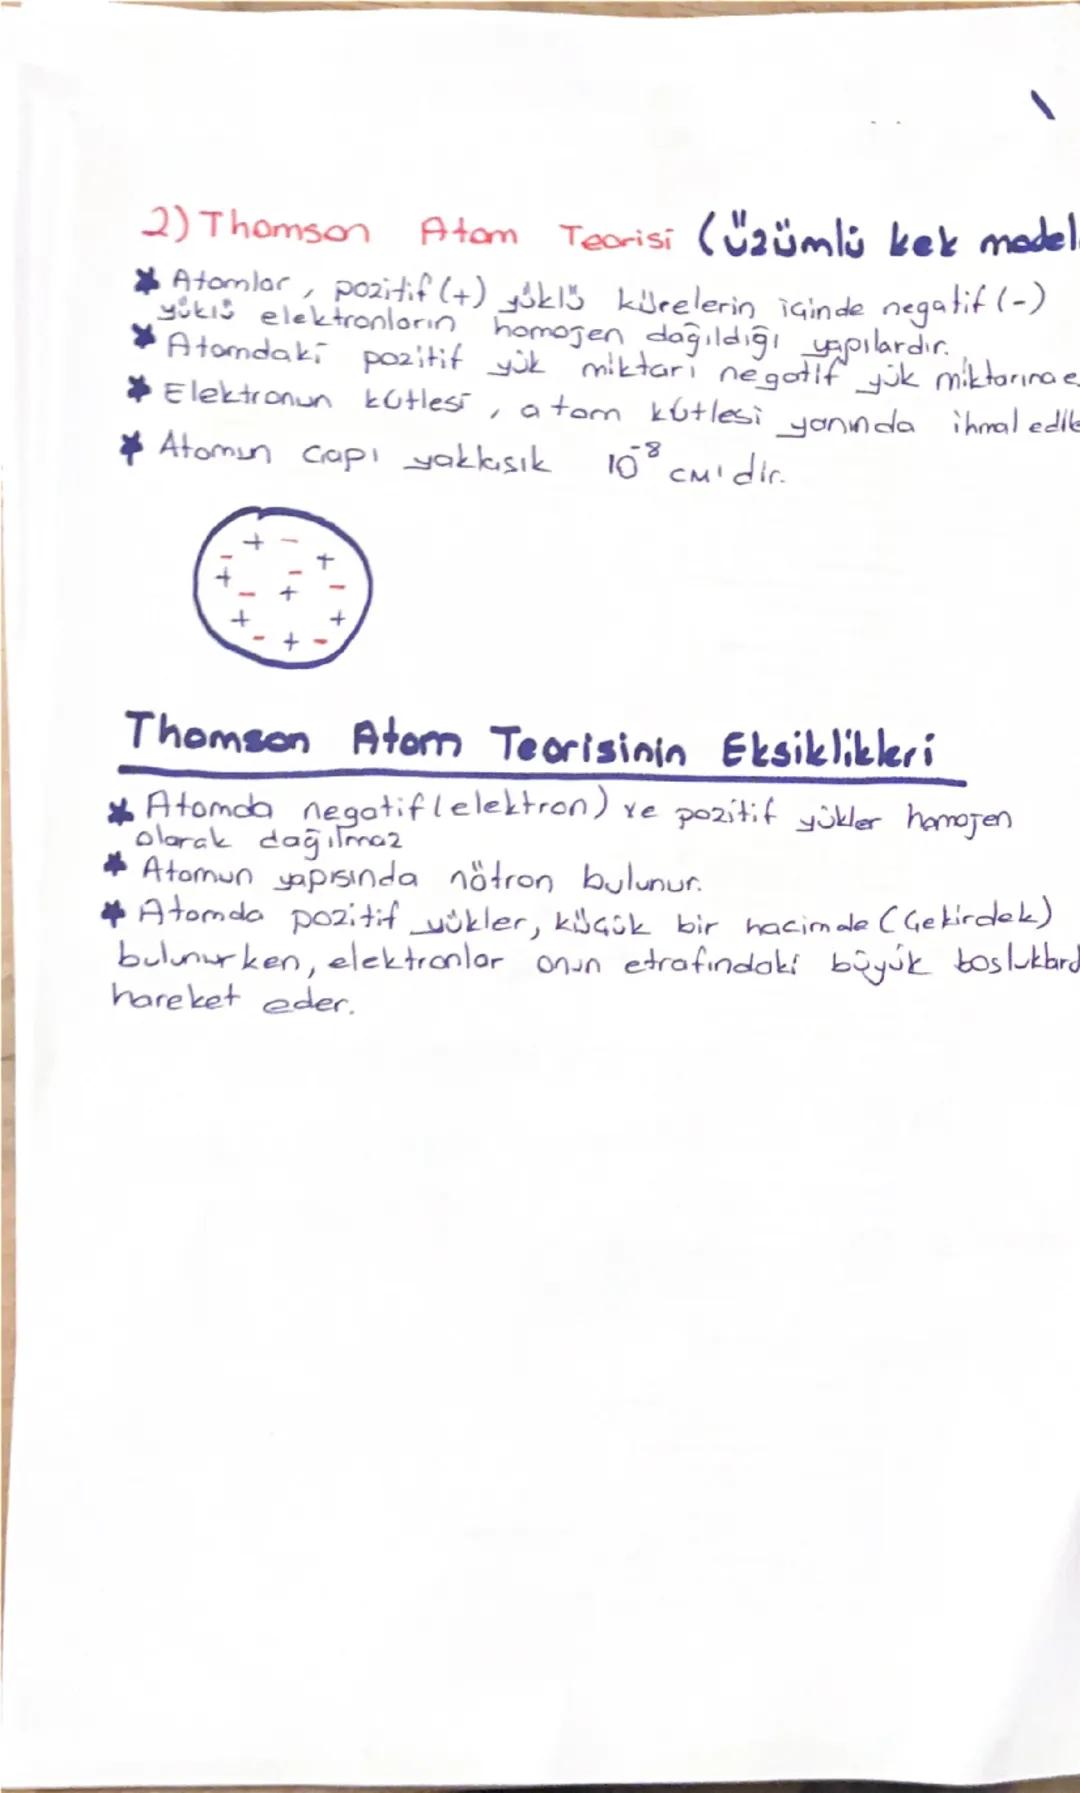 2) Thomson Atom Teorisi (Üzümlü kek model
* Atomlar, pozitif (+) yüklü kürelerin içinde negatif (-)
yüklü elektronların homojen dağıldığı yapılardır.
* Atomdaki pozitif yük miktarı negatif yük miktarına e
* Elektronun kütlesi, atom kütlesi yanında ihmal edile
* Atomun çapı yaklaşık 10⁻⁸ cm'dir.
+ -
- +
+ - -
- +
+ +
- + -
Thomson Atom Teorisinin Eksiklikleri
* Atomda negatif (elektron) ve pozitif yükler homojen
olarak dağılmaz
* Atomun yapısında nötron bulunur.
* Atomda pozitif yükler, küçük bir hacimde (Çekirdek)
bulunurken, elektronlar onun etrafındaki büyük boşluklard
hareket eder.